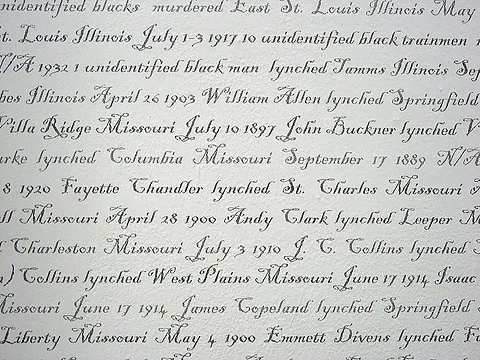 unidentified blacks murdered East St. Louis Illinois May
t. Louis Illinois July 1-3 1917 10 unidentified black trainmen
N/A 1932 1 unidentified black man lynched Tamms Illinois Sep
bes Illinois April 26 1903 William Allen lynched Springfield
Villa Ridge Missouri July 10 1897 John Buckner lynched V
urke lynched Columbia Missouri September 17 1889 N/A
8 1920 Fayette Chandler lynched St. Charles Missouri
ll Missouri April 28 1900 Andy Clark lynched Leeper M
Charleston Missouri July 3 1910 J. C. Collins lynched
) Collins lynched West Plains Missouri June 17 1914 Isaac
Missouri June 17 1914 James Copeland lynched Springfield
Liberty Missouri May 4 1900 Emmett Divens lynched Fu